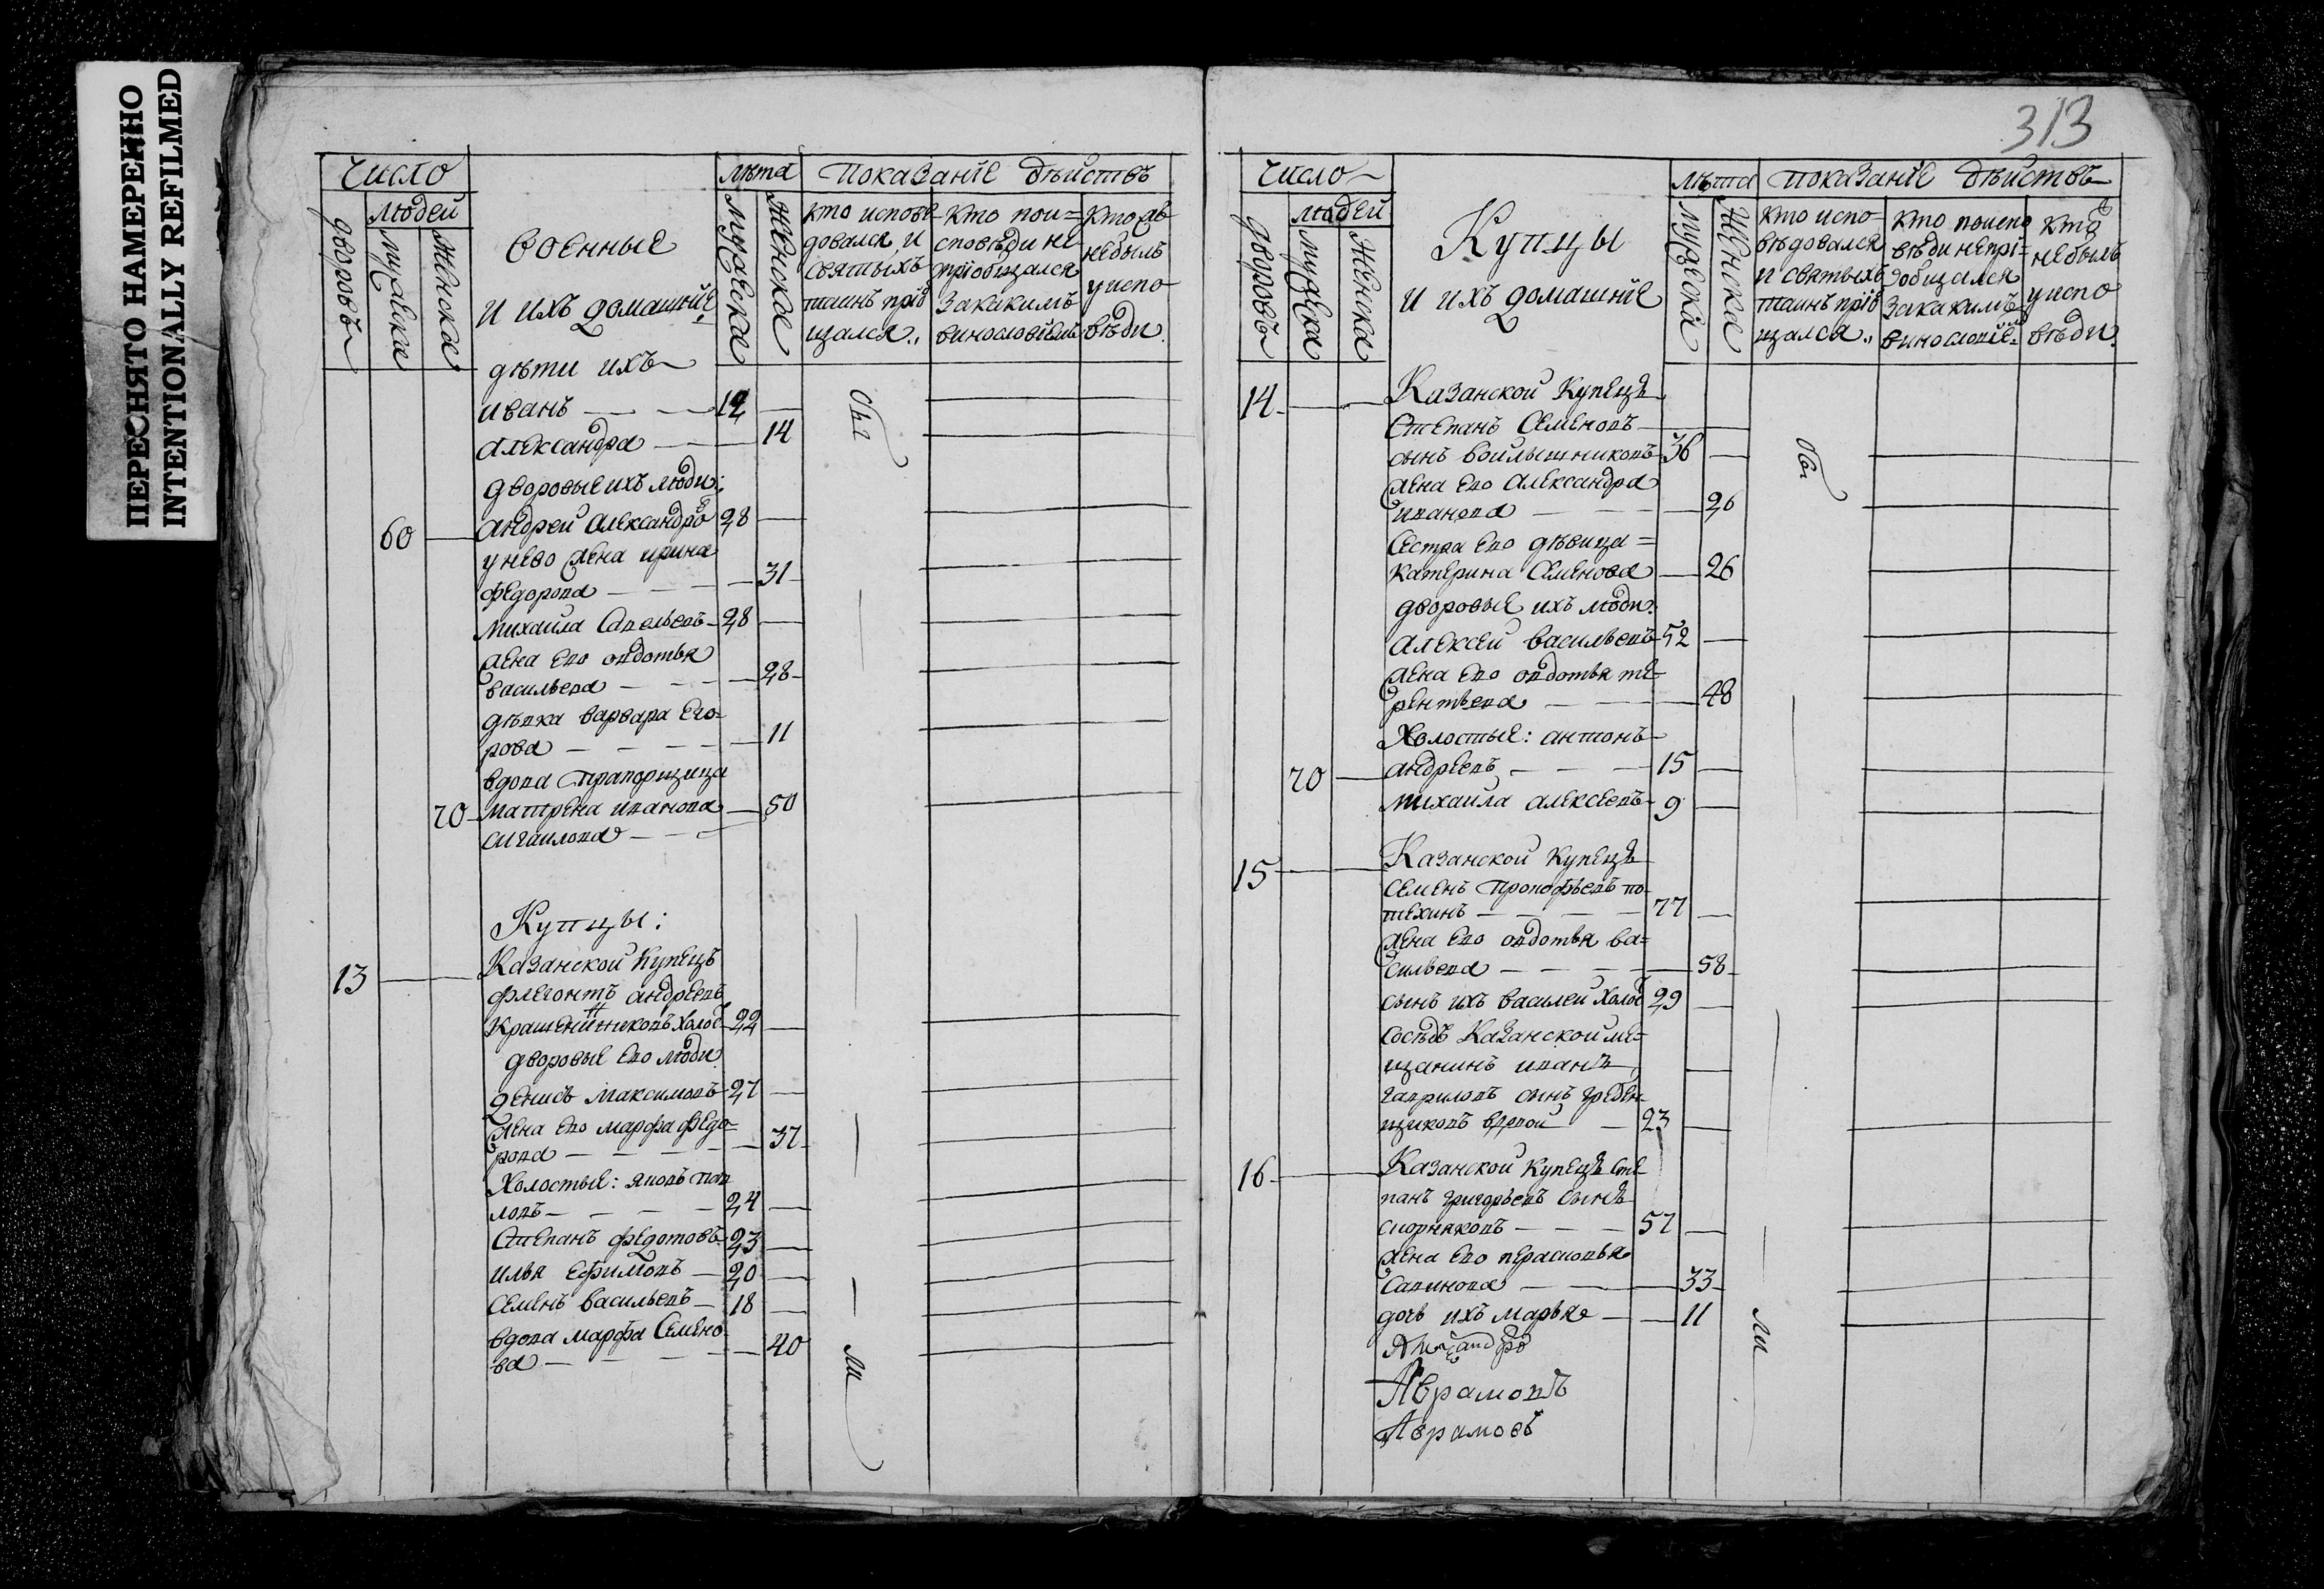 ПЕРЕСНЯТО НАМЕРЕННО
INTENTIONALLY REFILMED
Число
людей
дворовъ
мужеска
женска
военные
и ихъ домашнїе
лѣта
мужеска
женска
показанїе дѣйствъ
кто исповѣ-
довался и
святыхъ
таинъ прїоб
щался.,
кто пои=
сповѣди не
прїобщался
за какимъ
винословїемъ
кто
небылъ
у испо-
вѣди.
дѣти ихъ
иванъ — 12
александра — 14
обы
дворовые ихъ люди:
60 андрей александровъ 28
у нево жена ирина
федорова — 31
михаила савельевъ — 28
жена ево овдотья
васильева — 28
дѣвка варвара его-
рова — 11
вдова прапорщица
70 матрена иванова — 50
сигаилова
Купцы:
13 Казанской купецъ
флегонтъ андреевъ
крашенинниковъ холос 22
дворовые ево люди
денисъ максимовъ 27
жена ево марфа федо-
рова — 37
Холостые: яковъ пав
ловъ — 24
Степанъ федотовъ 23
илья ефимовъ — 20
Семенъ васильевъ — 18
вдова марфа семено-
ва — 40
ли
313
Число
людей
дворовъ
мужеска
женска
Купцы
и ихъ домашнїе
лѣта
мужеска
женска
показанїе дѣйствъ
кто испо-
вѣдовался
и святыхъ
таинъ прїоб
щался.,
кто поиспо
вѣди непрї-
общался
за какимъ
винословїе.
кто
небылъ
у испо
вѣди.
14 Казанской купецъ
Степанъ Семеновъ
сынъ войлышниковъ 36
обы
жена ево Александра
иванова — 26
Сестра ево дѣвица =
катерина Семенова — 26
дворовые ихъ люди:
Алексей васильевъ 52
жена ево овдотья те-
рентьева — 48
Холостые: антонъ
70 андреевъ — 15
михаила алексеевъ — 9
15 Казанской купецъ
Семенъ прокофьевъ по-
техинъ — 77
жена ево овдотья ва=
сильева — 58
сынъ ихъ василей холос 29
Сосѣдъ Казанской ме-
щанинъ иванъ
гавриловъ сынъ гребен-
щиковъ вдовой — 23
16 Казанской купецъ Сте
панъ григорьевъ сынъ
скорняковъ — 57
жена ево перасковья
Савинова — 33
дочь ихъ марья — 11
ли
Аврамовъ
Аврамовъ